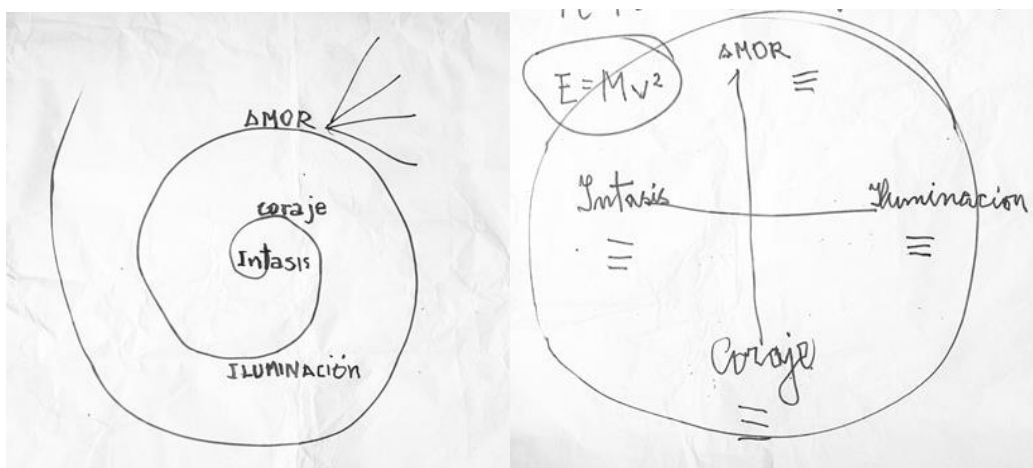 AMOR
coraje
Intasis
ILUMINACIÓN
E = Mv²
AMOR
Intasis
Iluminación
Coraje